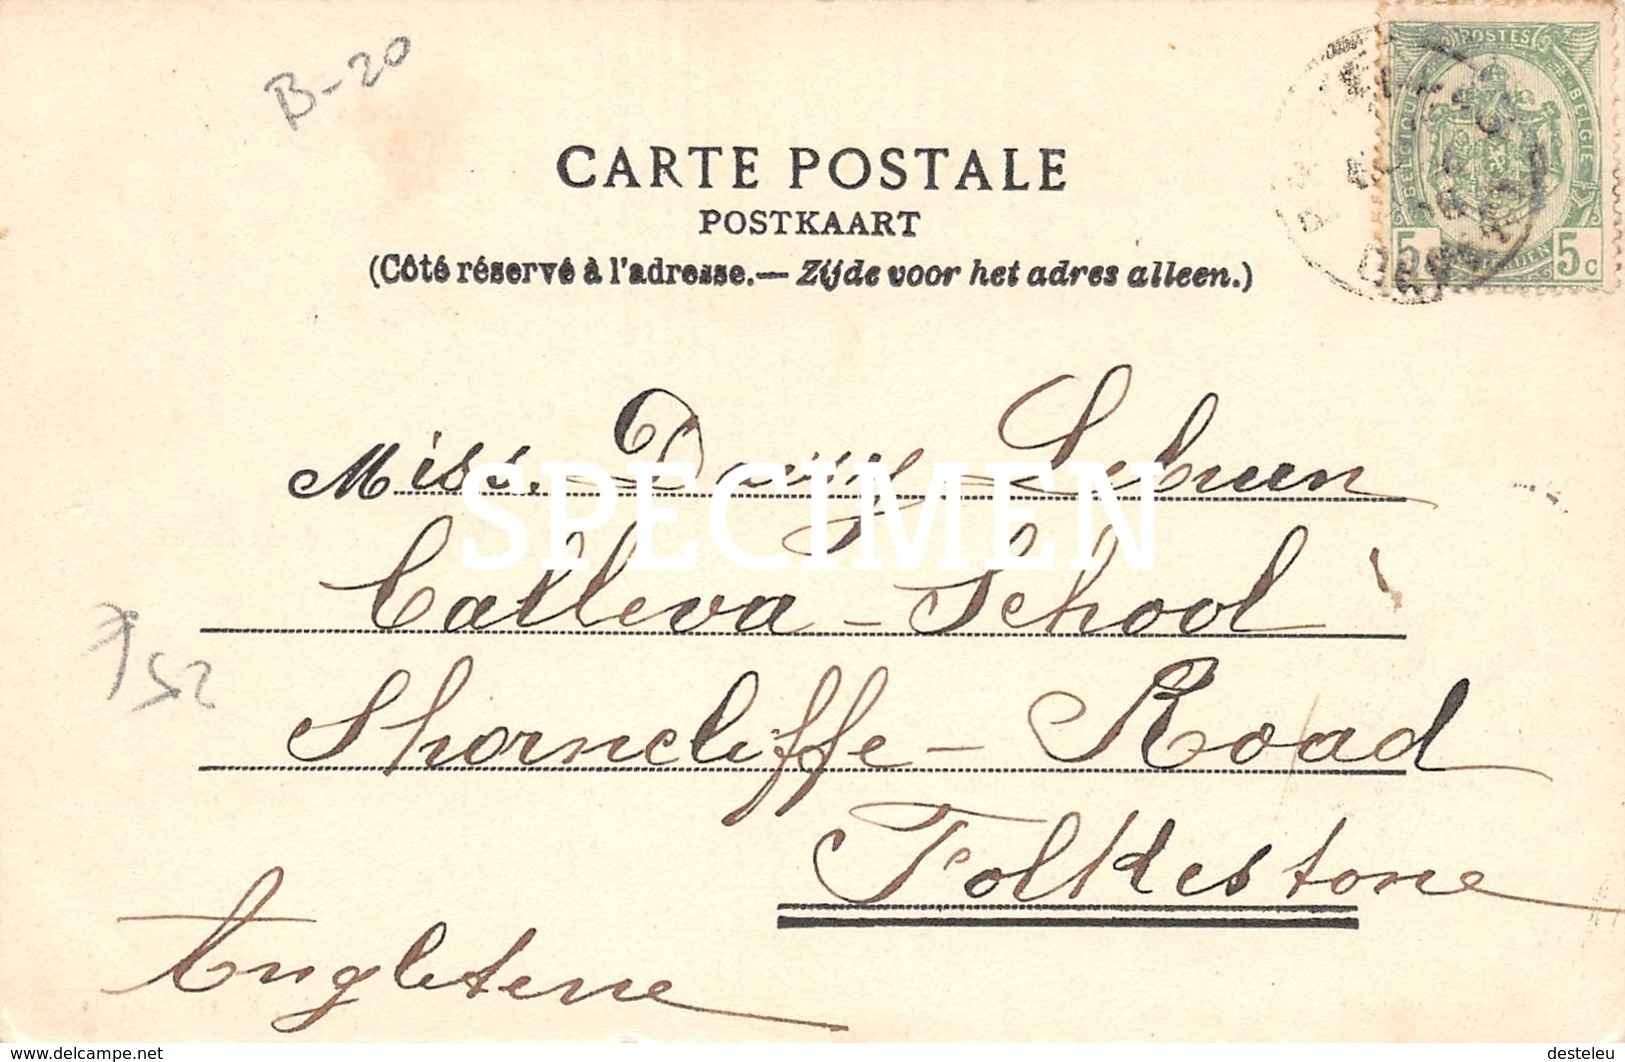 B-20
POSTES
BELGIQUE BELGIE
5 5c
CARTE POSTALE
POSTKAART
(Côté réservé à l'adresse.— Zijde voor het adres alleen.)
Miss. Daisy Lebrun
SPECIMEN
Calleva - School
52
Shorncliffe - Road
Folkestone
Angleterre
www.delcampe.net
desteleu